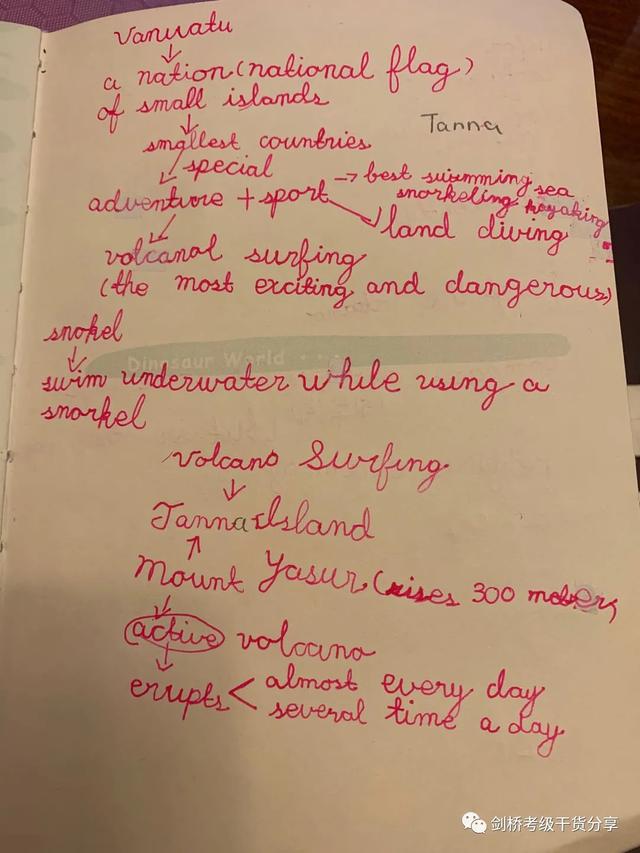 Vanuatu
↓
a nation (national flag)
of small islands
↓
smallest countries
Tanna
special
adventure + sport → best swimming sea
snorkeling kayaking
land diving
volcanal surfing
(the most exciting and dangerous)
snokel
↓
Dinosaur World
swim underwater while using a
snorkel
Volcano Surfing
↓
Tanna Island
↑
Mount Yasur (rises 300 meters)
↓
active volcano
↓
erupts < almost every day
several time a day
剑桥考级干货分享